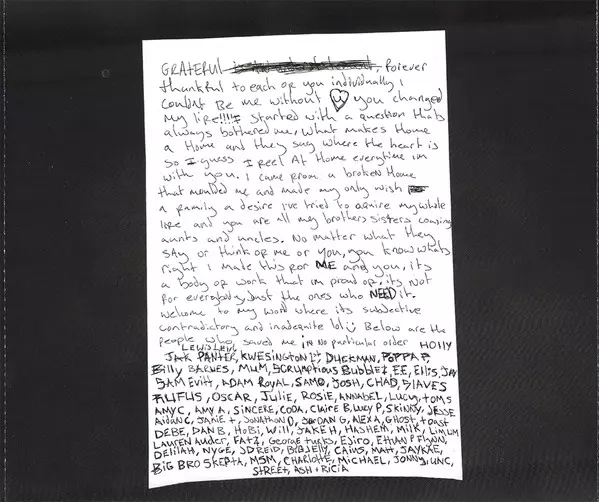 GRATEFUL is an understatement, Forever
thankful to each of you individually I
couldnt Be me without U you changed
my life!!!! I started with a question thats
always bothered me, What makes Home
a Home and they say where the heart is
so I guess I feel At Home everytime im
with you. I came from a broken Home
that moulded me and made my only wish
a family a desire I've tried to aquire my whole
life and you are all my brothers sisters cousins
aunts and uncles. No matter what they
say or think of me or you, you know whats
right I made this for ME and you, its
a body of work that im proud of, its not
for everybody Just the ones who NEED it.
Welcome to my world where its subjective
contradictory and inadequite lol :) Below are the
people who saved me in no particular order HOLLY
LEWIS LEVI
JACK PANTER, KWESINGTON DUCKMAN, POPPA P,
Billy BARNES, MUM, SCRUMPTIOUS BUBBLEZ, EE, Ellis, JAY
SAM EVITT, ADAM ROYAL, SAMO, JOSH, CHAD, SLAVES
RUFUS, OSCAR, Julie, ROSIE, ANNABEL, Lucy, toms
AMY C, AMY A, SINCERE, CODA, Claire B, Lucy P, SKINNY, JESSE
Aidan C, JANIE +, JONATHON D, JORDAN G, ALEXA, GHOST, toast
DEBE, DAN B, HoBi, Will, JAKE H, HASHEM, MILK, LIMLIM
LAUREN Auder, FATZ, George tucks, Esiro, Ethan P Flynn,
Delilah, NYGE, SD REID, BOB JELLY, CAIUS, Matt, JAYKAE,
BIG BRO SKEPTA, MSM, CHARLOTTE, MICHAEL, JONNY, UNC,
STREET, ASH + RICIA